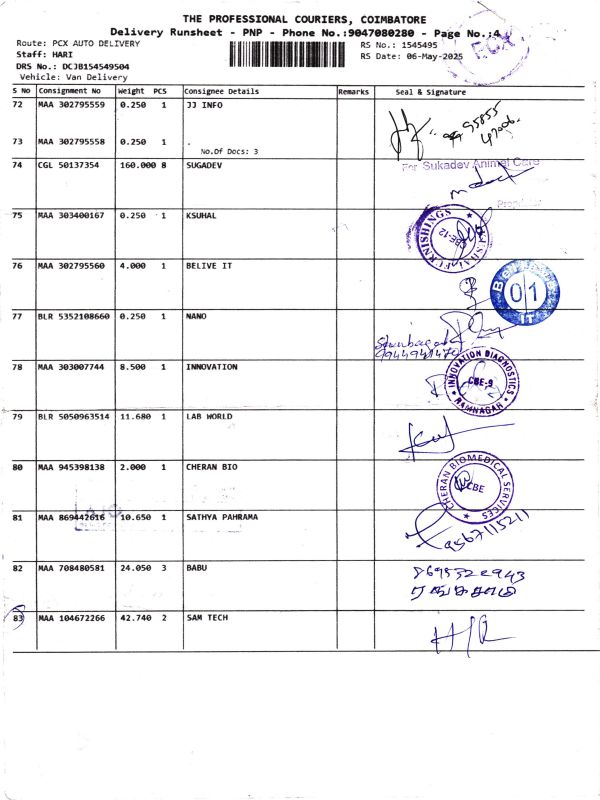 THE PROFESSIONAL COURIERS, COIMBATORE
Delivery Runsheet - PNP - Phone No.:9047080280 - Page No.:4
Route: PCX AUTO DELIVERY
RS No.: 1545495
PCX
Staff: HARI
RS Date: 06-May-2025
DRS No.: DCJB154549504
Vehicle: Van Delivery
S No Consignment No Weight PCS Consignee Details Remarks Seal & Signature
72 MAA 302795559 0.250 1 JJ INFO
73 MAA 302795558 0.250 1 .
No.Of Docs: 3
74 CGL 50137354 160.000 8 SUGADEV
For Sukadev Animal Care
75 MAA 303400167 0.250 1 KSUHAL
KUSHAL FURNISHINGS
CBE-12
76 MAA 302795560 4.000 1 BELIVE IT
01
IT
77 BLR 5352108660 0.250 1 NANO
78 MAA 303007744 8.500 1 INNOVATION
INNOVATION DIAGNOSTICS
CBE-9
RAMNAGAR
79 BLR 5050963514 11.680 1 LAB WORLD
80 MAA 945398138 2.000 1 CHERAN BIO
CHERAN BIOMEDICAL SERVICES
CBE
81 MAA 869442616 10.650 1 SATHYA PAHRAMA
9567115211
82 MAA 708480581 24.050 3 BABU
8695322943
83 MAA 104672266 42.740 2 SAM TECH